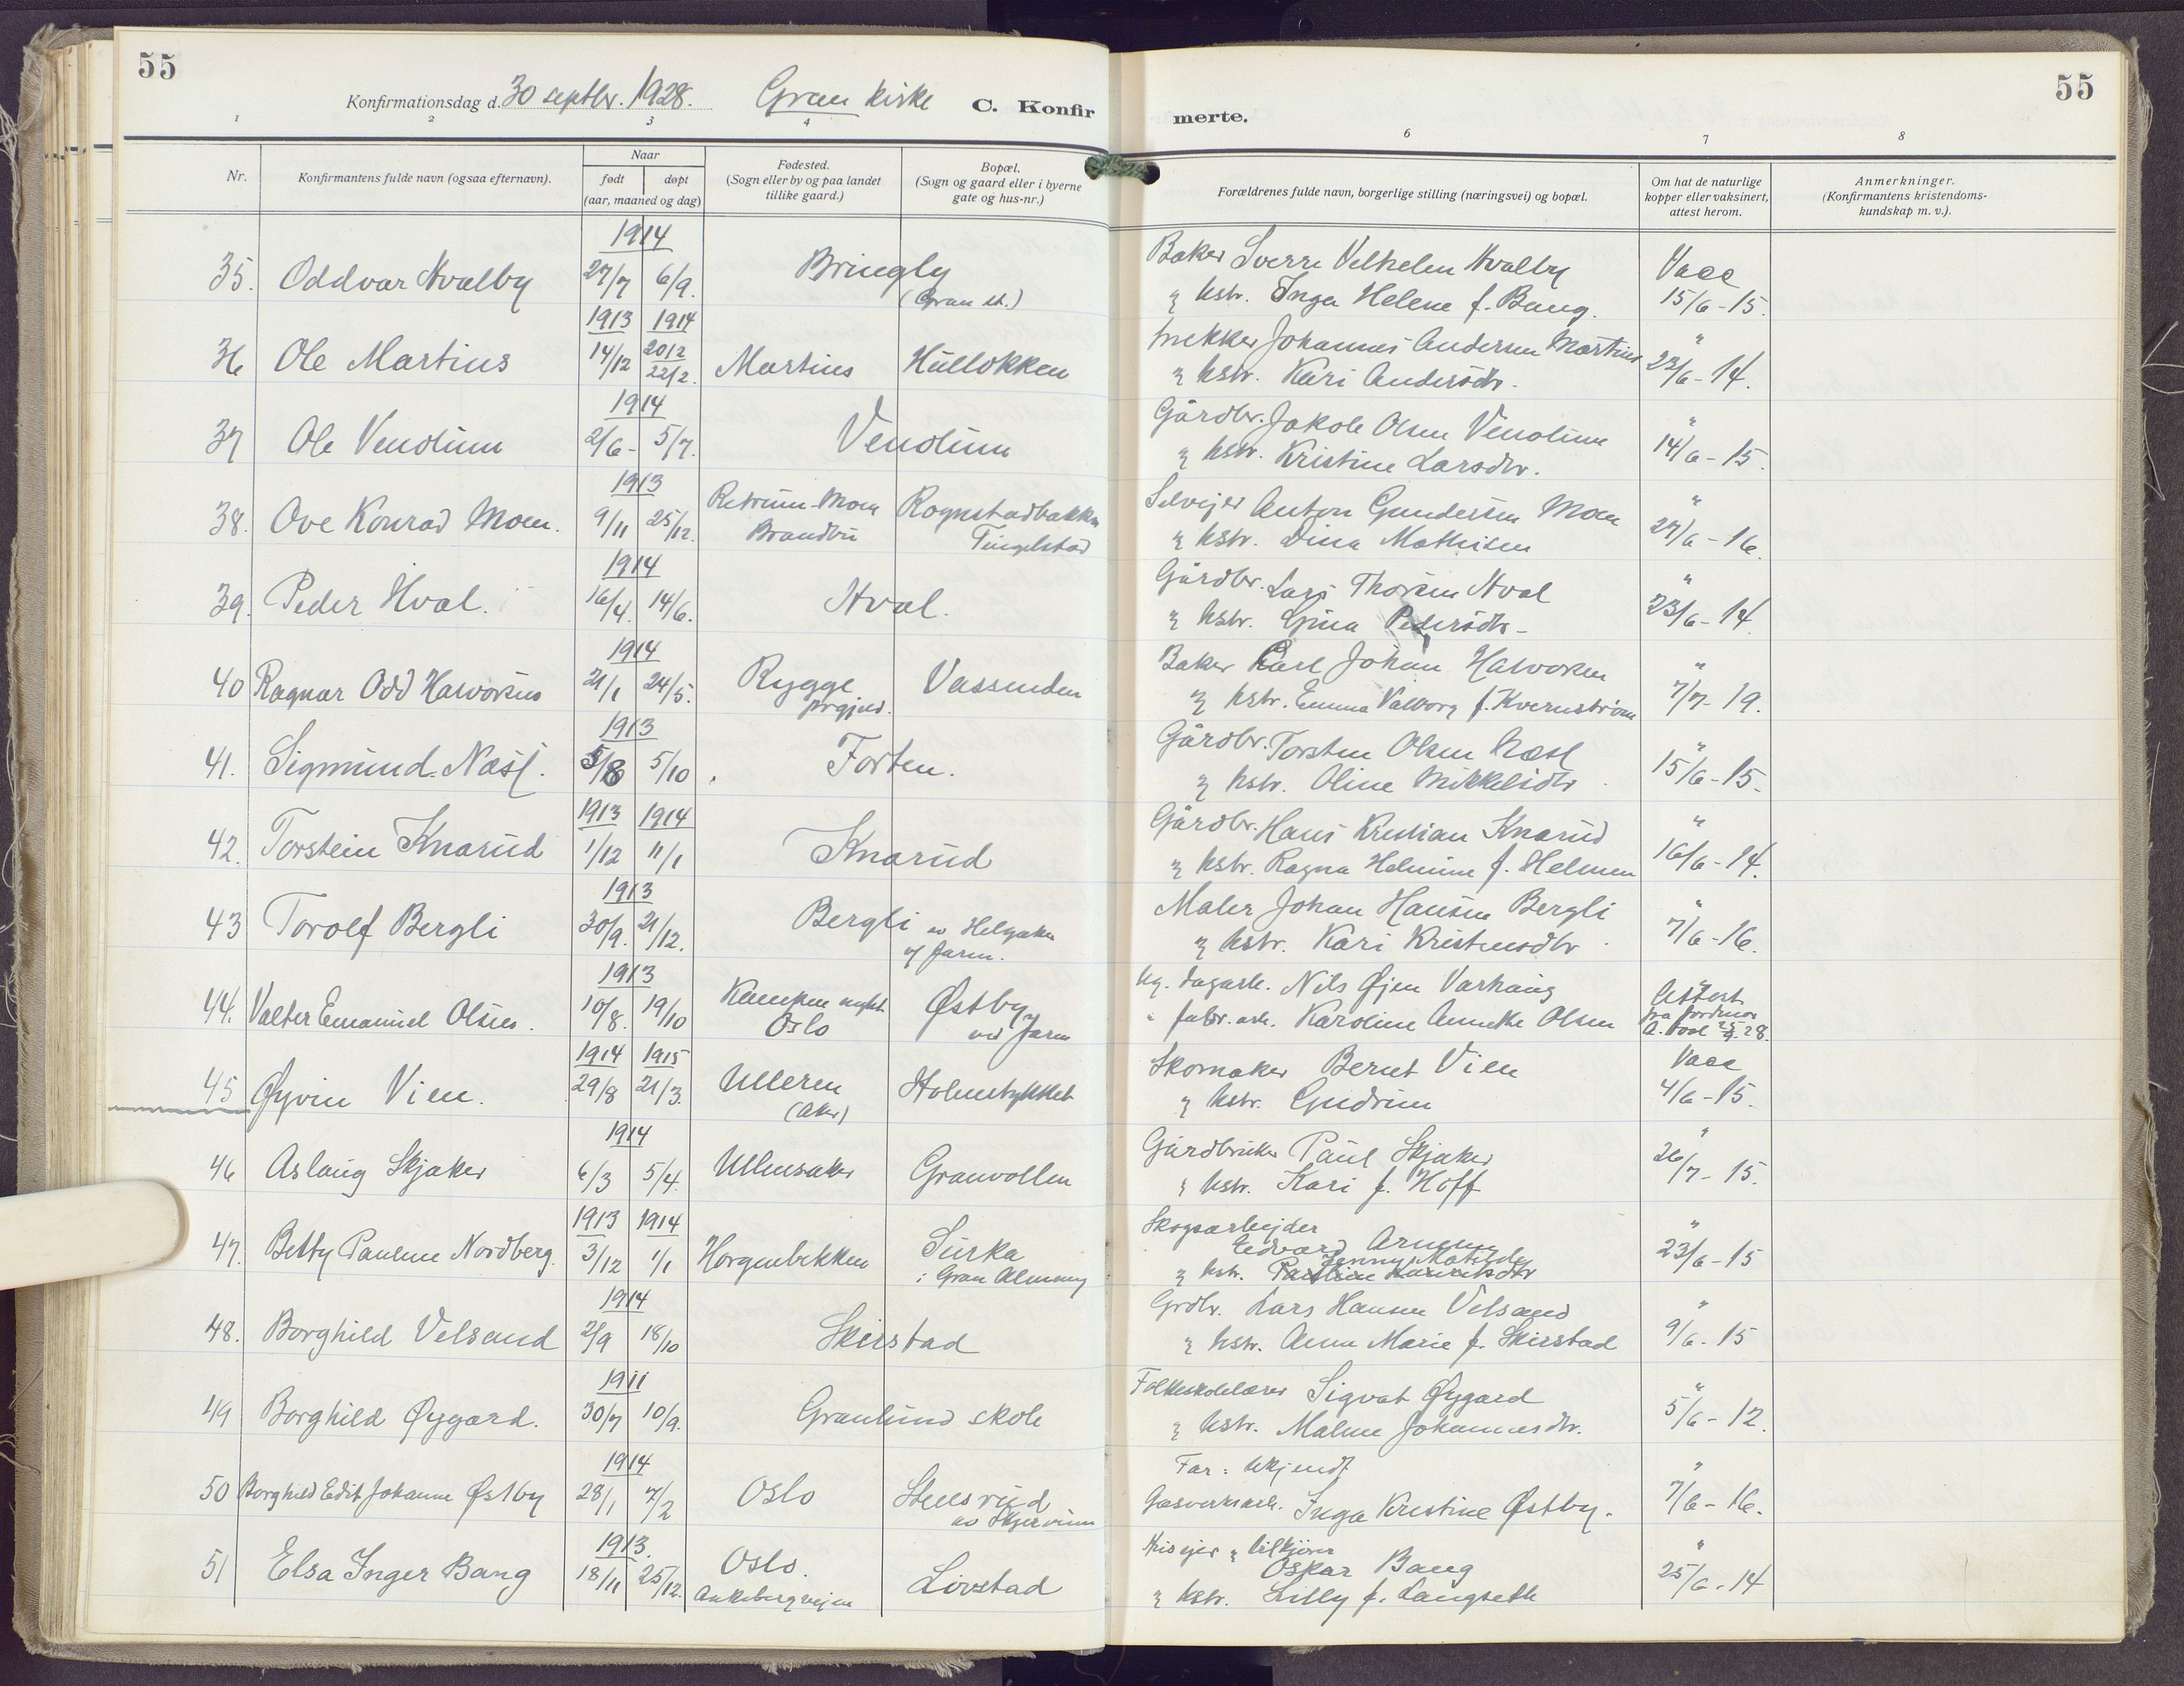 55
Konfirmationsdag d. 30 septbr. 1928. Gran kirke C. Konfir
1 2 3 4
Nr. Konfirmantens fulde navn (ogsaa efternavn). Naar født døpt (aar, maaned og dag) Fødested. (Sogn eller by og paa landet tillike gaard.) Bopæl. (Sogn og gaard eller i byerne gate og hus-nr.)
1914
35. Oddvar Hvalby 27/7 6/9. Bringly
(Gran st.)
1913 1914
36 Ole Martius 14/12 20/2 22/2. Martius Hullokken
1914
37 Ole Venolum 2/6- 5/7. Venolum
1913
38. Ove Konrad Moen. 9/11 25/12. Retrum-Moen Brandbu Roynstadbakken Tingelstad
1914
39. Peder Hval. 16/4. 14/6. Hval.
1914
40 Ragnar Odd Halvorsen 21/1 24/5. Rygge prgjeld. Vassenden
1913
41. Sigmund Næsl. 5/8 5/10 Forten.
1913 1914
42. Torstein Knarud 1/12 11/1 Knarud
1913
43 Torolf Bergli 30/9. 21/12. Bergli av Helgaker
v/ Jaren.
1913
44. Valter Emanuel Olsen. 10/8. 19/10 Oslo Østby ved Jaren
1914 1915
45 Øyvin Vien. 29/8 21/3. Ulleren (Aker) Holmstykket
1914
46 Aslaug Skjaker 6/3 5/4. Ullensaker Granvollen
1913 1914
47. Betty Paulene Nordberg. 3/12 1/1 Horgenbekken Surka
i Gran Almenng
1914
48. Borghild Velsand 2/9 18/10 Skirstad
1911
49 Borghild Øygard. 30/7 10/9. Granlund skole
1914
50 Borghild Edit Johanne Østby 28/1 7/2 Oslo Stensrud
av Skjervum
1913.
51 Elsa Inger Bang 18/11 25/12. Oslo. Løvstad
55
merte.
6 7 8
Forældrenes fulde navn, borgerlige stilling (næringsvei) og bopæl. Om hat de naturlige kopper eller vaksinert, attest herom. Anmerkninger. (Konfirmantens kristendoms-kundskap m. v.).
Baker Sverre Velhelm Hvalby Vacc
& hstr. Inga Helene f. Bang. 15/6-15.
Snekker Johannes Andersen Martius "
& hstr. Kari Andersdtr. 23/6-14.
Gårdbr. Jakob Olsen Venolum "
& hstr. Kristine Larsdtr. 14/6-15.
Selvejer Anton Gundersen Moen "
& hstr. Dina Mathisen 27/6-16.
Gårdbr. Lars Thorsen Hval "
& hstr. Gina Pedersdtr- 23/6-14.
Baker Carl Johan Halvorsen "
& hstr. Emma Valborg f. Kvernstrøm 7/7-19.
Gårdbr. Torsten Olsen Næsl "
& hstr. Oline Mikkelsdtr 15/6-15.
Gårdbr. Hans Kristian Knarud "
& hstr. Ragna Helmine f. Helmen 16/6-14.
Maler Johan Hansen Bergli "
& hstr. Kari Kristensdtr 7/6-16.
Ug. dagarb. Nils Øjen Varhaug Attest
" fabr. arb. Karoline Annethe Olsen fra Jordmor
28.
Skomaker Bernt Vien Vacc
& hstr. Gudrun 4/6-15.
Gårdbruker Paul Skjaker "
& hstr. Kari f. Hoff 26/7-15.
Skogsarbejder "
Edvard Arnesen 23/6-15
Jenny Matilde
& hstr.
Grdbr. Lars Hansen Velsand "
& hstr. Anne Marie f. Skirstad 9/6-15
Folkeskolelærer Sigvat Øygard "
& hstr. Malene Johannesdtr. 5/6-12.
Far: Ukjendt "
Gasverksarb. Inga Kristine Østby. 7/6-16.
Huseier & bilkjører "
Oskar Bang 25/6-14
& hstr. Lilly f. Langseth